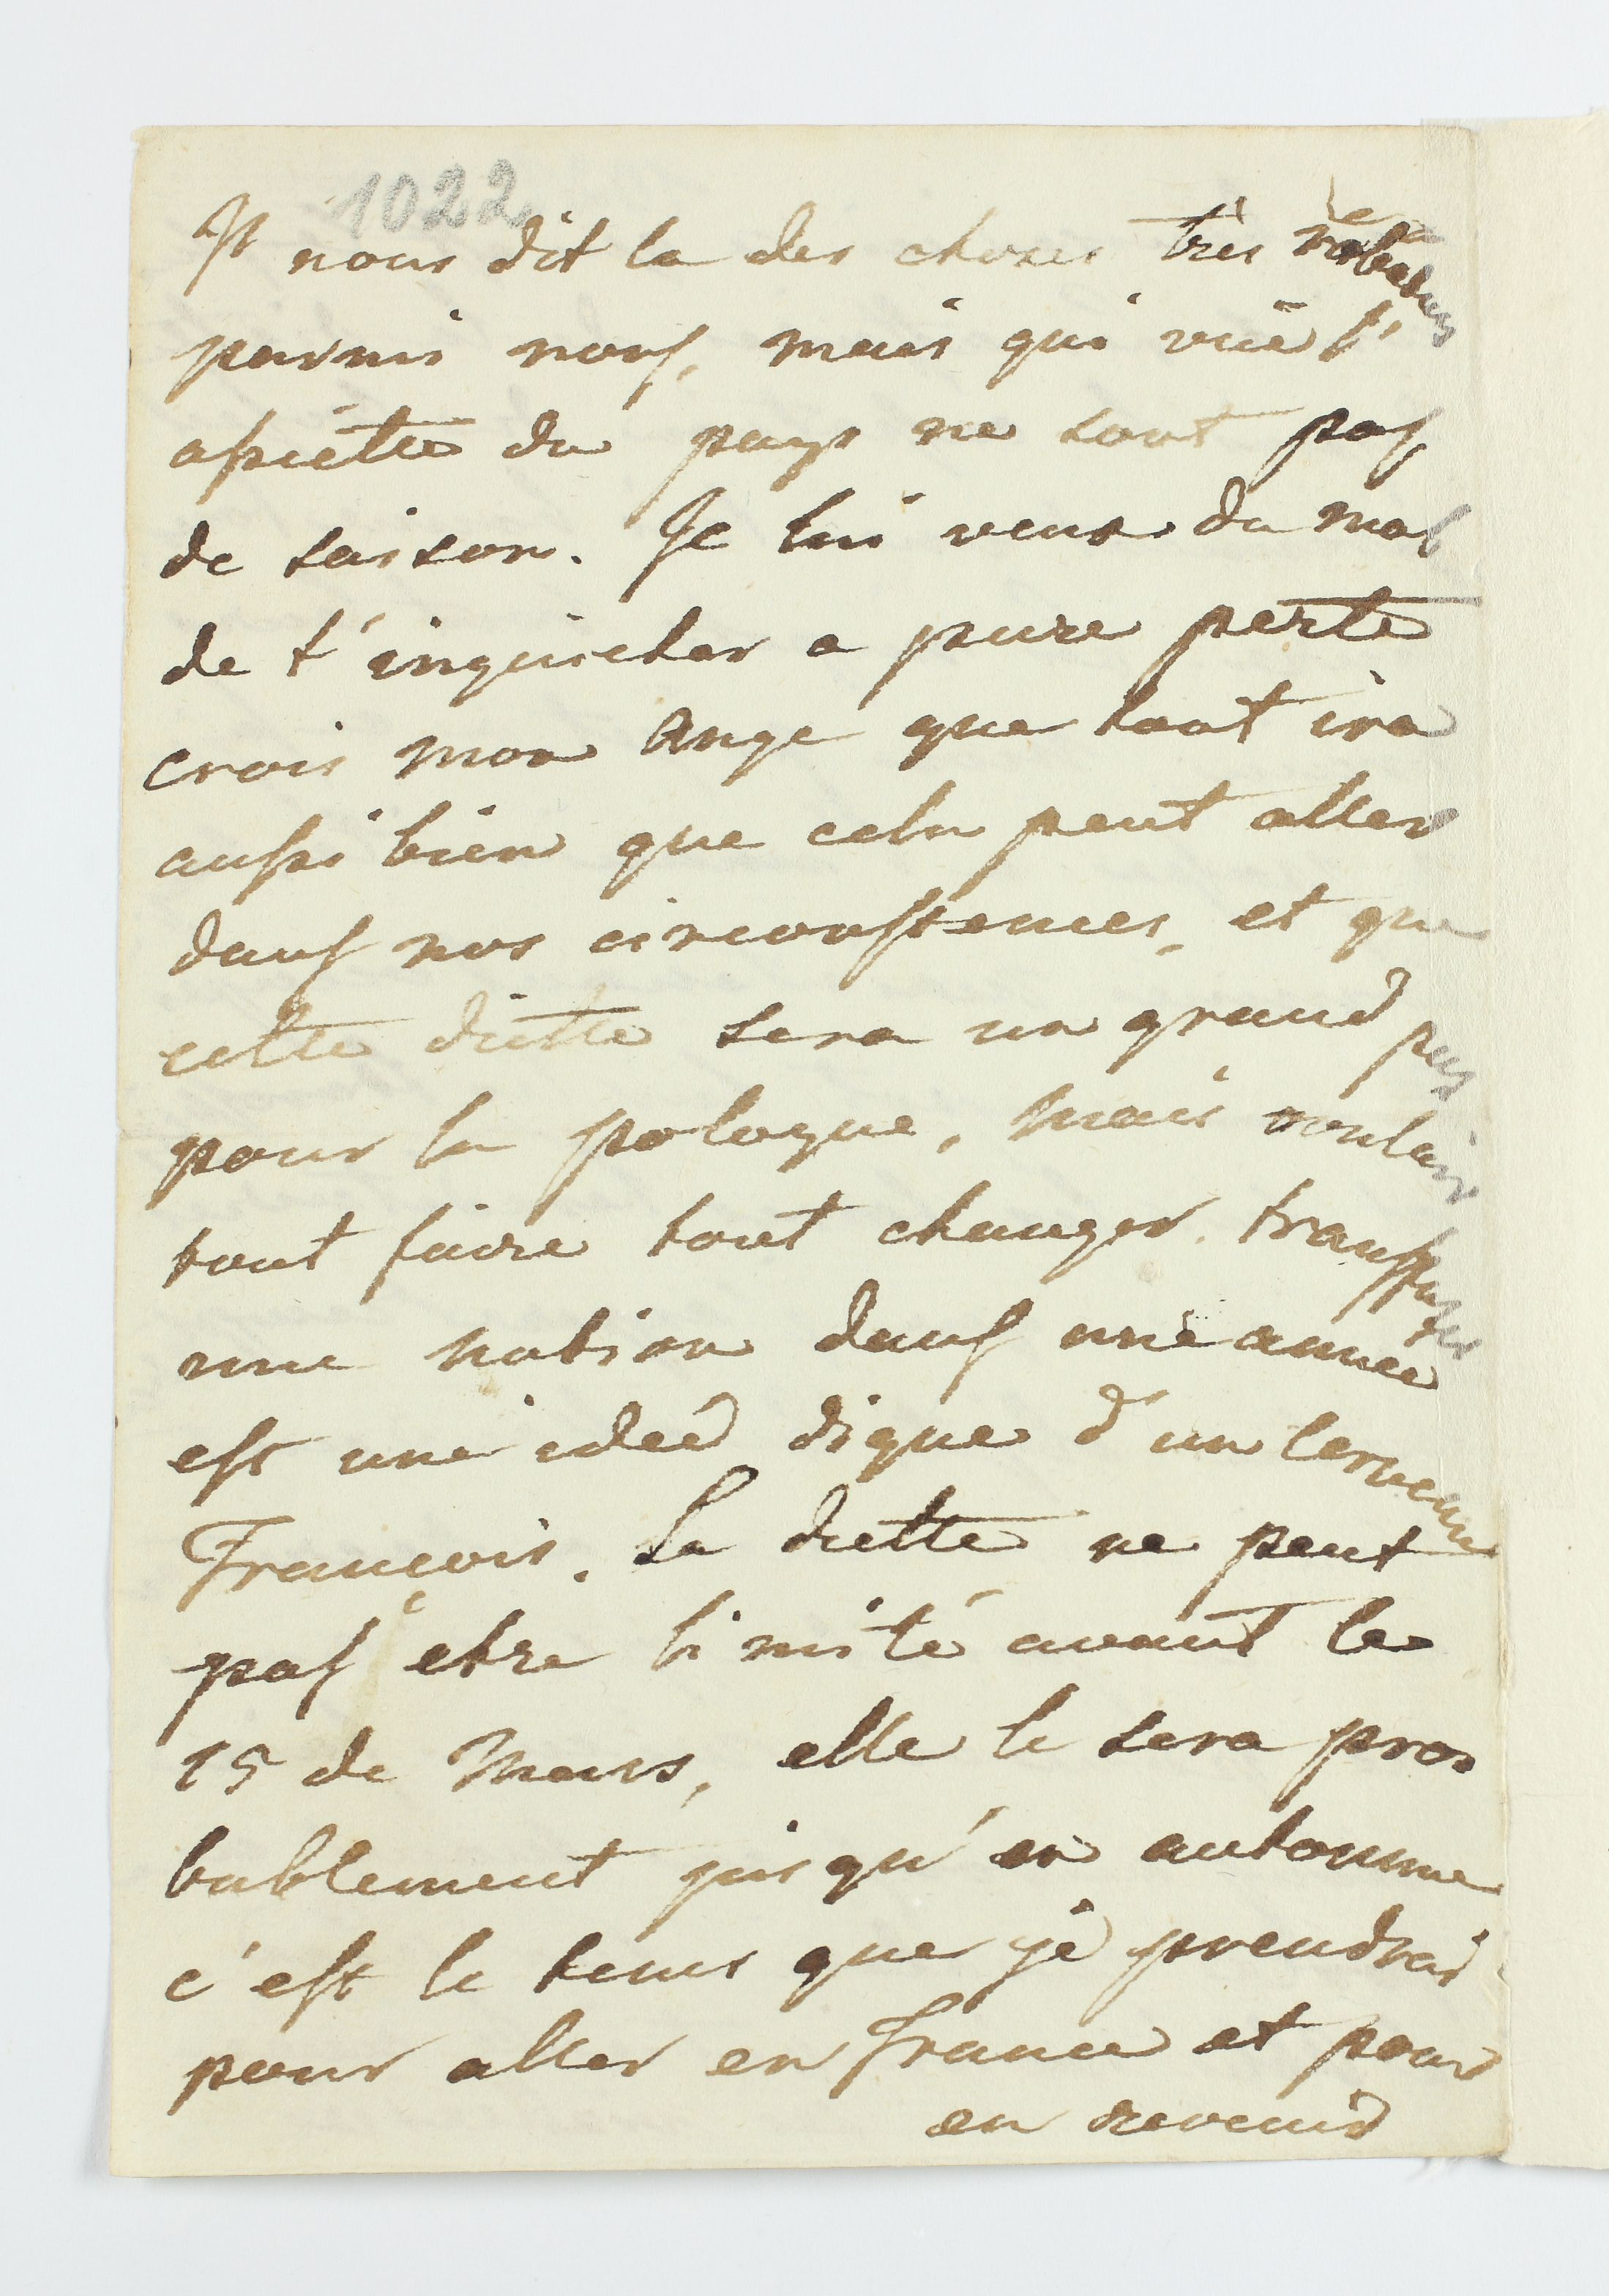 1022
Il nous dit la des choses tres
parmis nous, mais qui vuë l'
assiétte du pays ne sont pas
de saison. Je lui veux du mal
de t'inquieter a pure perte
crois mon Ange que tout ira
aussi bien que cela peut aller
dans nos circonstences, et que
cette diette sera un grand pas
pour la pologne, mais vouloir
tout faire tout changer, transfuser
une nation dans une année
est une ideé digne d'un cerveau
François. La diette ne peut
pas etre limité avant le
15 de Mars, elle le sera pro
bablement jusqu'en automne
c'est le tems que je prendrai
pour aller en france et pour
en revenir